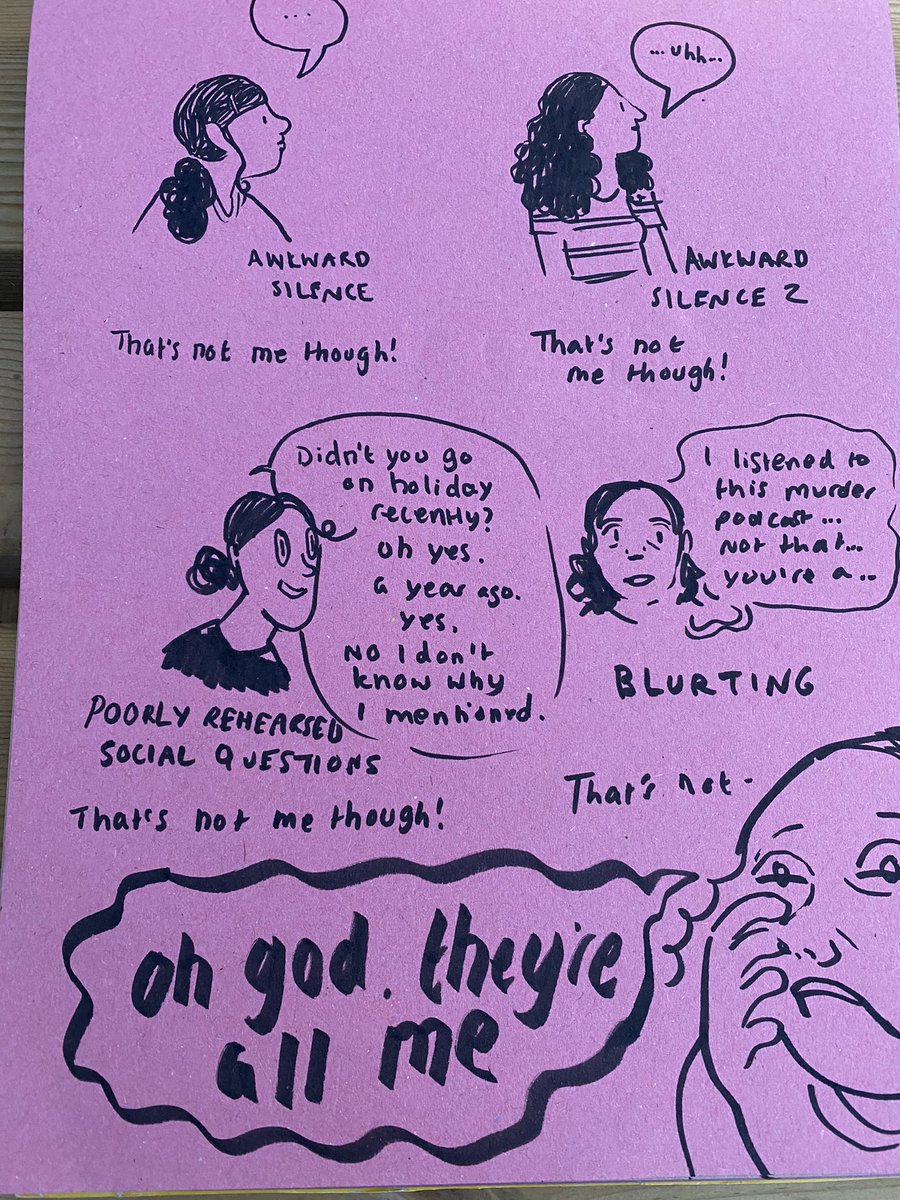 ...
AWKWARD
SILENCE
That's not me though!
...uhh...
AWKWARD
SILENCE 2
That's not
me though!
Didn't you go
on holiday
recently?
oh yes.
a year ago.
yes.
NO I don't
know why
I mentioned.
POORLY REHEARSED
SOCIAL QUESTIONS
That's not me though!
I listened to
this murder
podcast...
Not that...
you're a..
BLURTING
That's not-
oh god. they're
all me